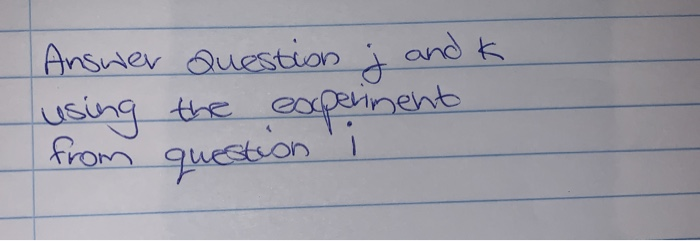 Answer Question j and k
using the experiment
from question i